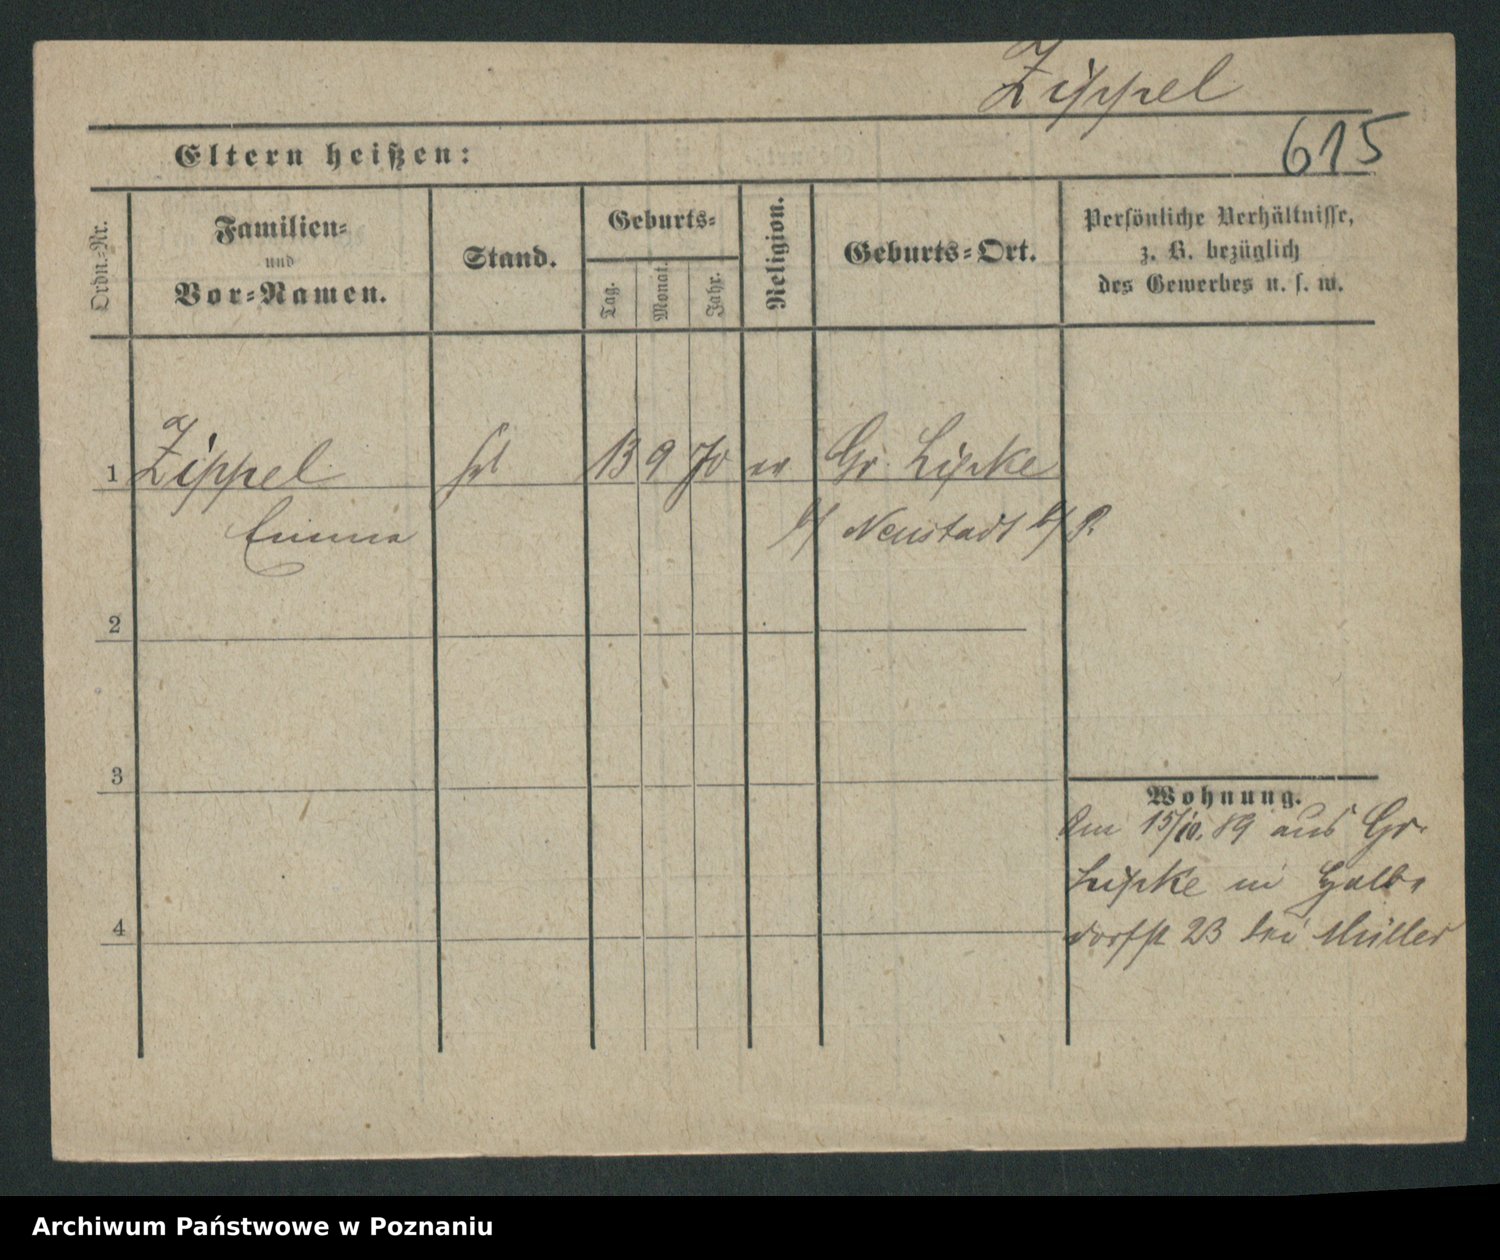 Zippel
615
Eltern heißen:
Ordn.-Nr.
Familien-
und
Vor-Namen.
Stand.
Geburts-
Tag.
Monat.
Jahr.
Religion.
Geburts-Ort.
Persönliche Verhältnisse,
z. B. bezüglich
des Gewerbes u. s. w.
1 Zippel 13 9 70 ev Gr. Lipke
Emma Neustadt b/P.
2
3
Wohnung.
Am 15/10. 89 aus Gr.
Lipke in Halb
dorfst 23 bei Müller
4
Archiwum Państwowe w Poznaniu